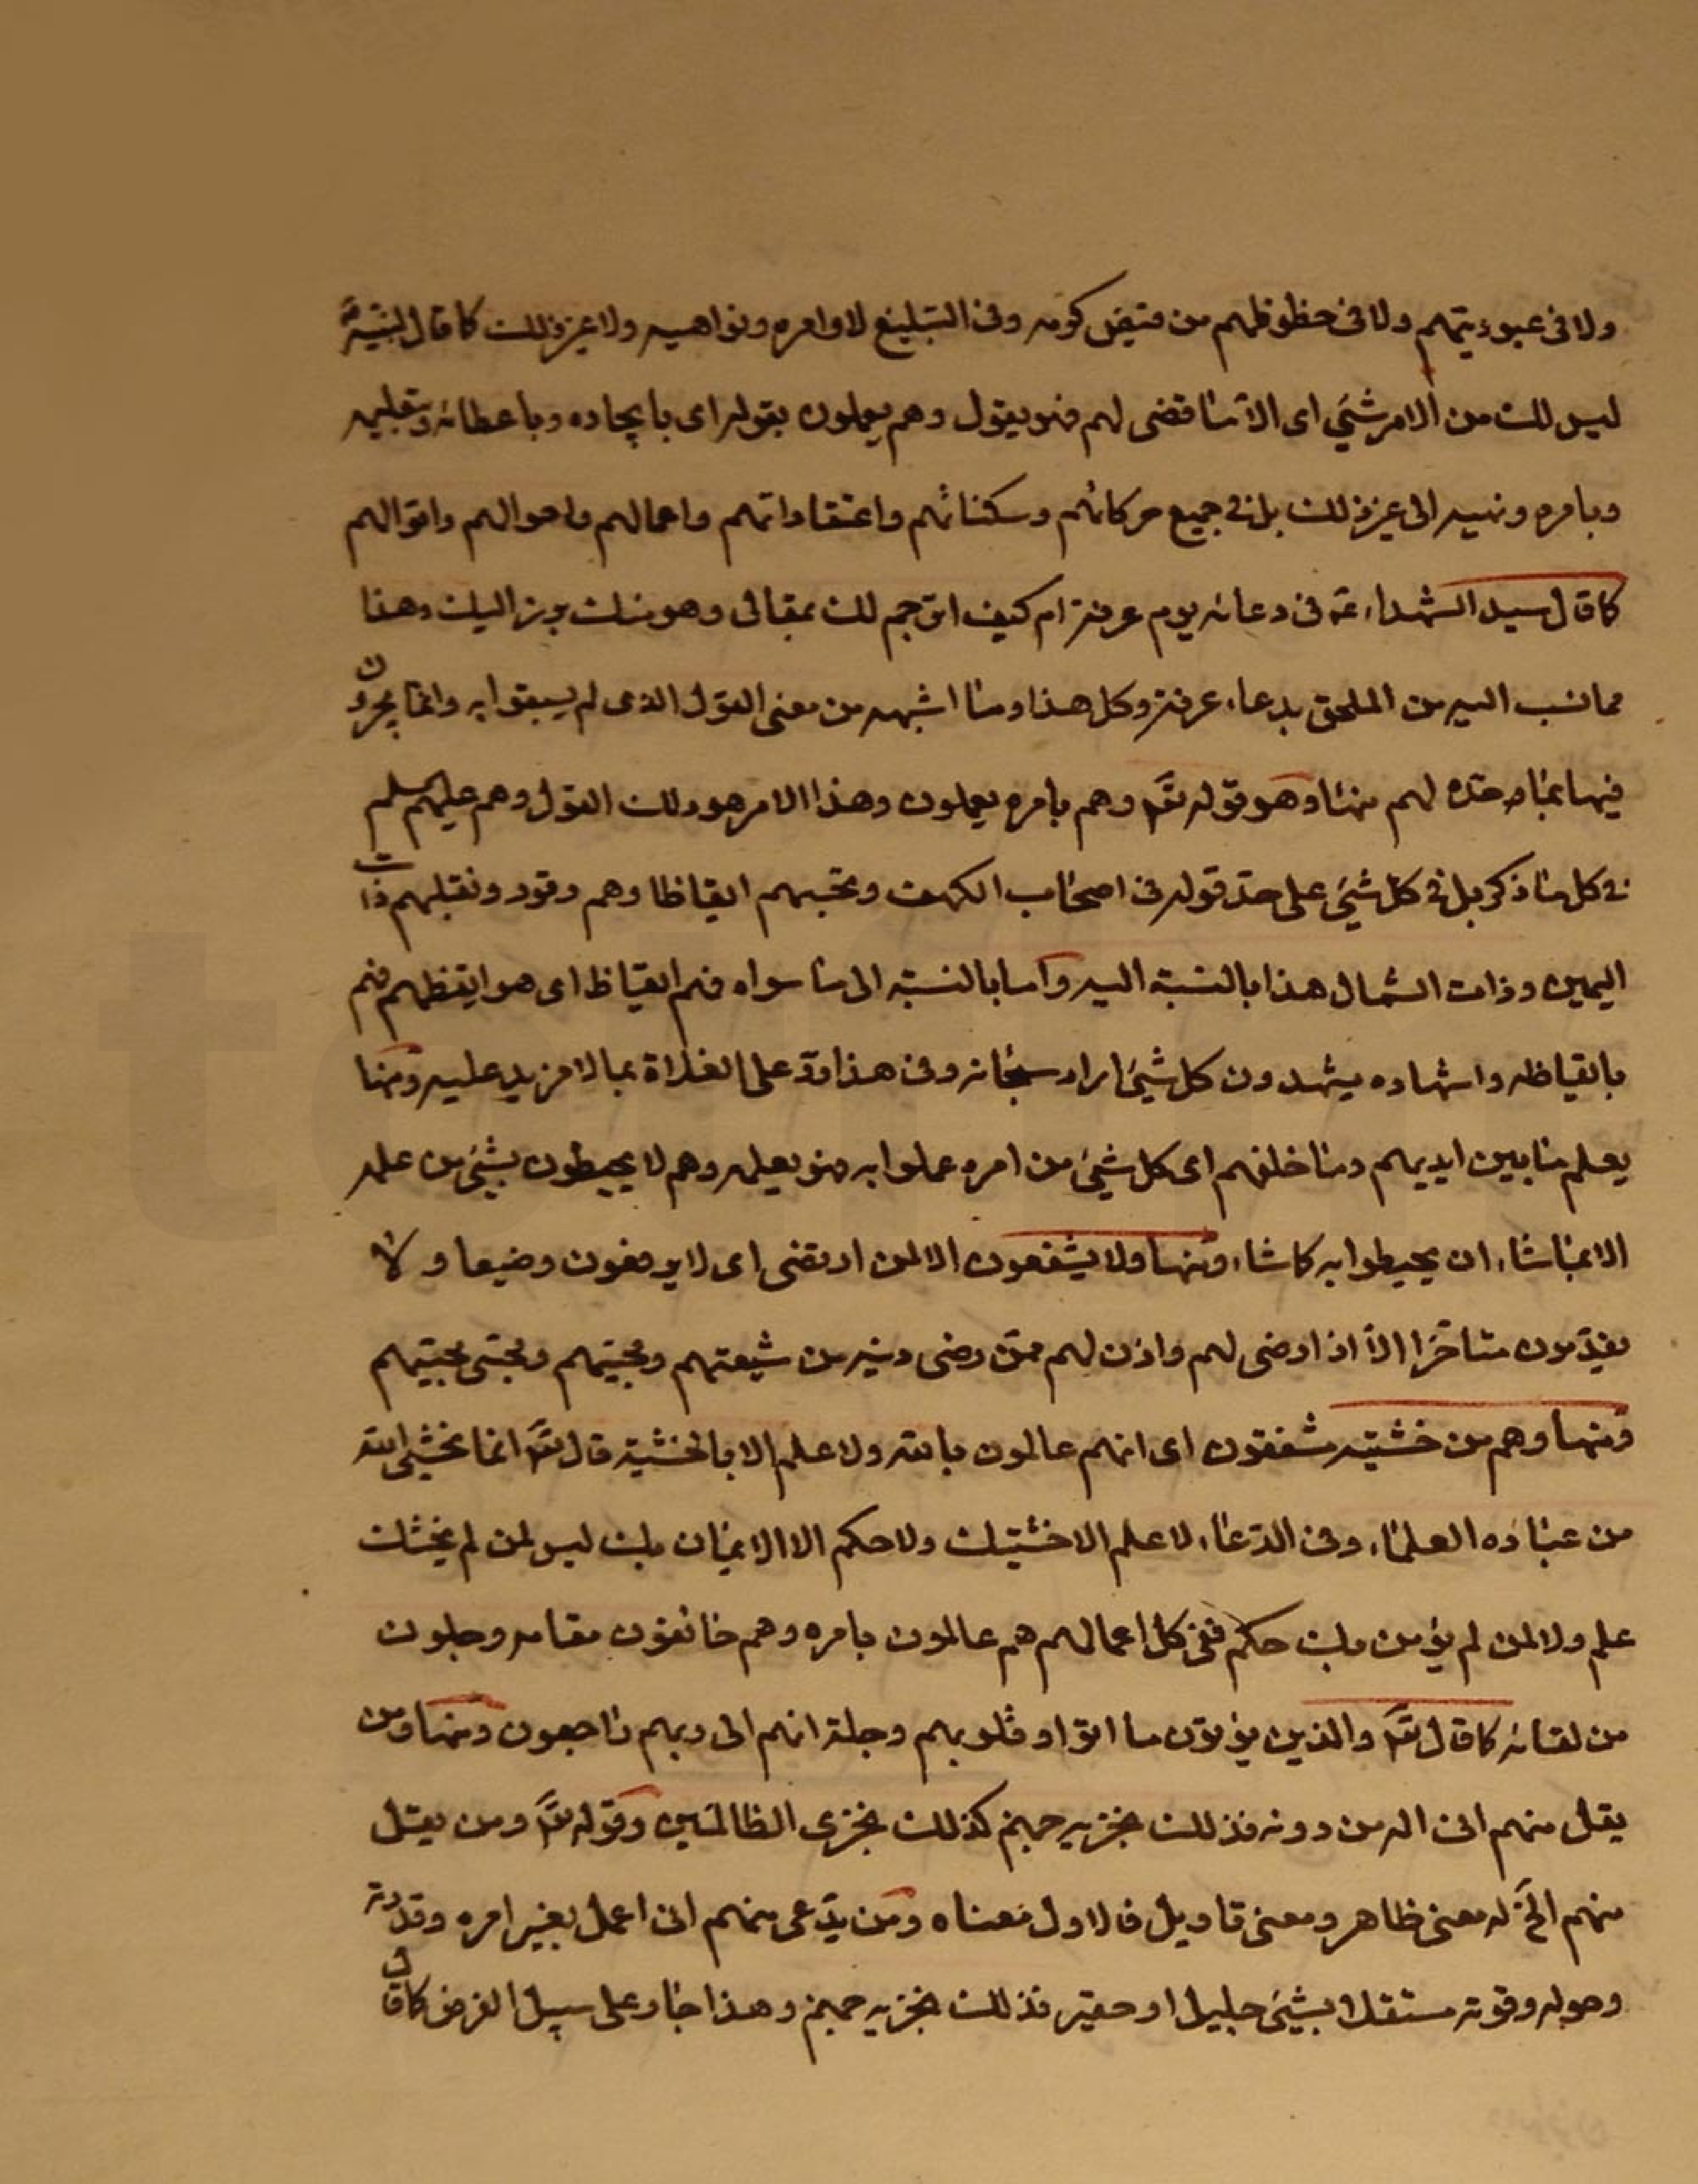 ولا فى عبوديتهم ولا فى حظوظهم من فيض كرمه وفى التبليغ لاوامره ونواهيه ولا غير ذلك كما قال لنبيه
ليس لك من الامر شىء اى الا ما قضى لهم فهو يقول وهم يعملون بقوله اى بايجاده وباعطائه وتعليمه
وبامره ونهيه الى غير ذلك بل فى جميع حركاتهم وسكناتهم واعتقاداتهم واعمالهم واحوالهم واقوالهم
كما قال سيد الشهداء ع فى دعائه يوم عرفة ام كيف اترجم لك بمقالى وهو منك برز اليك وهذا
مما نسب اليه من الملحق بدعاء عرفة وكل هذا وما اشبهه من معنى القول الذى لم يسبقوا به وانما يجرون
فيها بما حده لهم منها وهو قوله تع وهم بامره يعملون وهذا الامر هو ذلك القول وهم عليهم السلم
فى كل ما ذكر بل فى كل شىء على حد قوله فى اصحاب الكهف وتحسبهم ايقاظا وهم رقود ونقلبهم ذات
اليمين وذات الشمال هذا بالنسبة اليه واما بالنسبة الى ما سواه فهم ايقاظ اى هو ايقظهم فهم
بايقاظه واشهاده يشهدون كل شىء اراد سبحانه وفى هذا رد على الغلاة بما لا مزيد عليه ومنها
يعلم ما بين ايديهم وما خلفهم اى كل شىء من امره عملوا به فهو يعلمه وهم لا يحيطون بشىء من علمه
الا بما شاء ان يحيطوا به كما شاء ومنها ولا يشفعون الا لمن ارتضى اى لا يرفعون وضيعا ولا
يقدمون متاخرا الا اذا رضى لهم واذن لهم ممن رضى دينه من شيعتهم ومحبيهم ومحبى محبيهم
ومنها وهم من خشيته مشفقون اى انهم عالمون بالله ولا علم الا بالخشية قال تع انما يخشى الله
من عباده العلماء وفى الدعاء لا علم الا خشيتك ولا حكم الا الايمان بك ليس لمن لم يخشك
علم ولا لمن لم يؤمن بك حكم ففى كل اعمالهم هم عالمون بامره وهم خائفون مقامه وجلون
من لقائه كما قال تع والذين يؤتون ما اتوا وقلوبهم وجلة انهم الى ربهم راجعون ومنها ومن
يقل منهم انى اله من دونه فذلك نجزيه جهنم كذلك نجزى الظالمين وقوله تع ومن يقل
منهم الخ له معنى ظاهر ومعنى تاويل فالاول معناه ومن يدعى منهم انى اعمل بغير امره وقدرته
وحوله وقوته مستقلا بشىء جليل او حقير فذلك نجزيه جهنم وهذا جار على سبيل الفرض كما قال